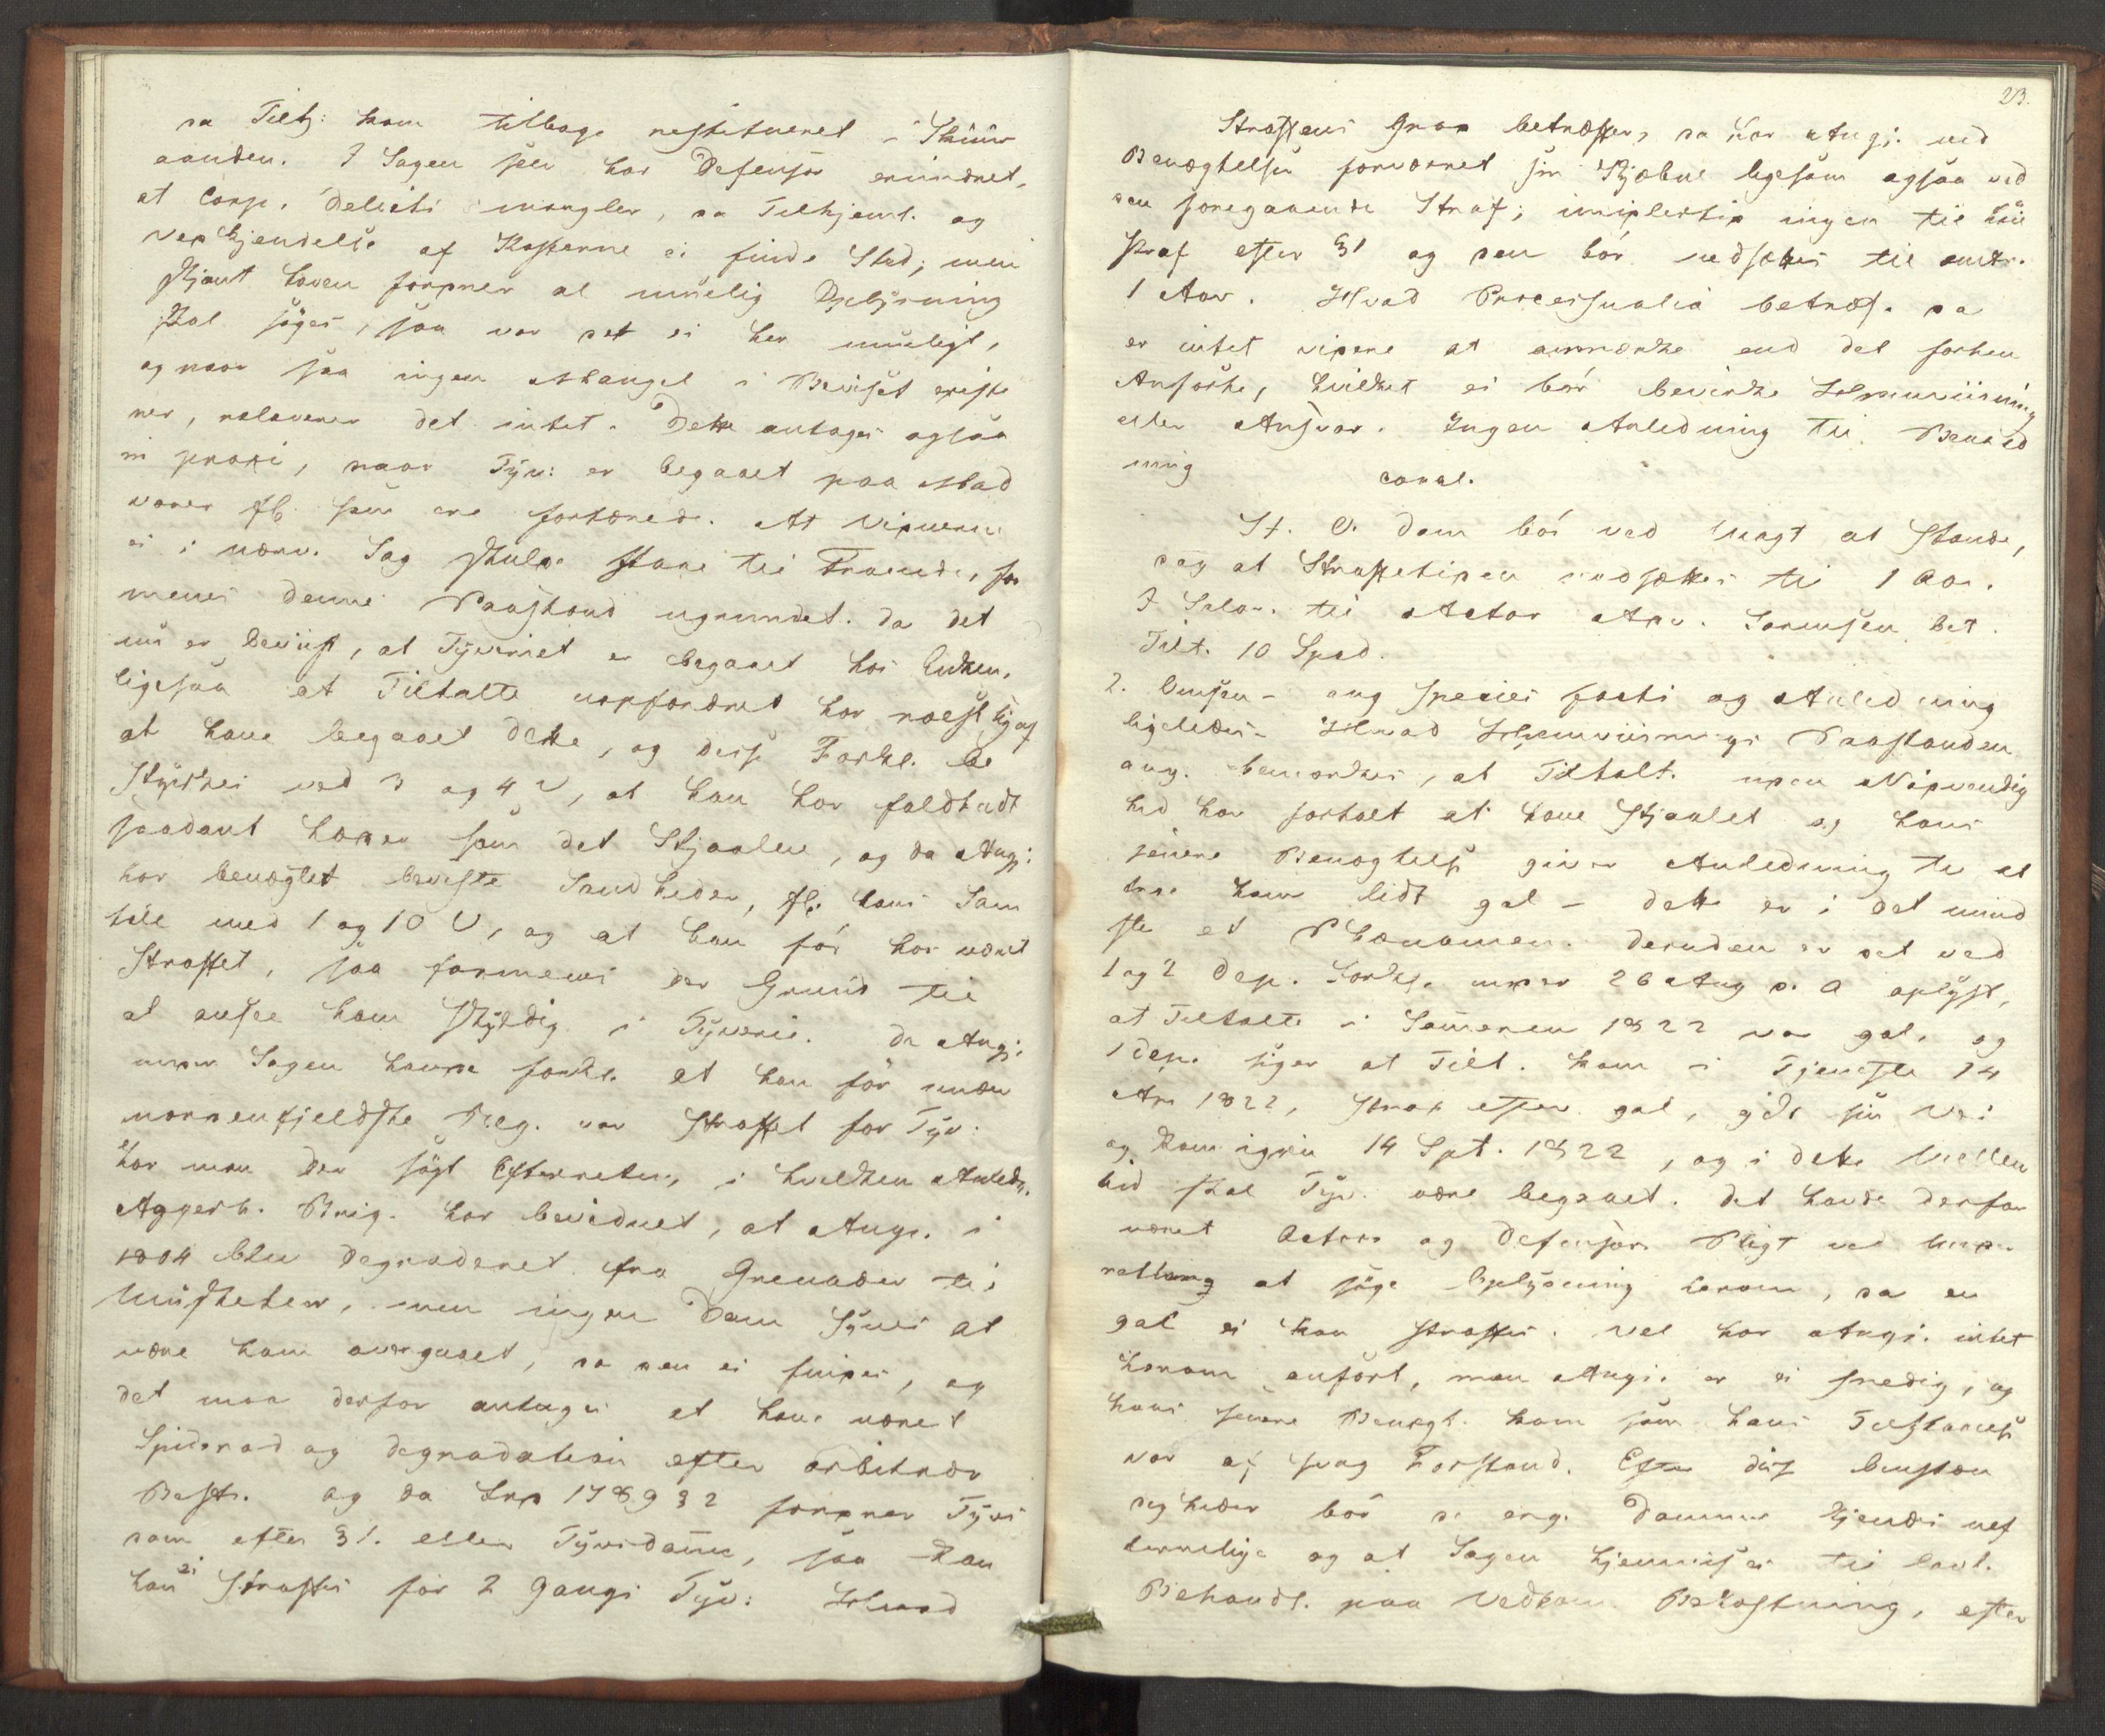 da Tilt: kom tilbage restitueret i Skiuv
aanden. I Sagen selv har Defensor erindret,
at Corp. Delicti mangler, da Tilhjeml. og
Vedkjendelse af Kosterne ei finde Sted; men
skjønt Loven fordrer al muelig Oplysning
skal søges, saa var det ei her mueligt,
og naar saa ingen Mangel i Beviset existe
rer, releverer det intet. Dette antages ogsaa
in praxi, naar Tyv: er begaaet paa Mad
varer fl. som ere fortærede. At Vidnerne
ei i nærv. Sag skulde staae til Troende, for
menes denne Paastand ugrundet. da det
nu er beviist, at Tyveriet er begaaet hos Enken,
ligesaa at Tiltalte uopfordret har røest sig af
at have begaaet dette, og diss Forkl. be
styrkes ved 3 og 4 V, at han har faldbudt
saadant Læder som det Stjaalne, og da Angj:
har benægtet beviste Sandheder, fl. hans Sam
tale med 1 og 10 V, og at han før har været
straffet, saa formenes der Grund til
at ansee ham skyldig i Tyverie. Da Angj.
under Sagen havde forkl. at han før under
nordenfjeldske Reg. var straffet for Tyv:
har man der søgt Efterretn, i hvilken Anledn.
Aggersh. Brig. har bevidnet, at Angj. i
1804 blev degraderet fra Grenader til
Musketeer, men ingen Dom synes at
være ham overgaaet, da den ei findes, og
det maa derfor antages at have været
Spidsrod og degradation efter arbitrær
Best. og da Frd 1789 § 2 fordrer Tyvs
dom efter § 1. eller Tyvsdømme, saa kan
han ei straffes for 2 Gangs Tyv: Hvad
23.
Straffens Grad betræffer, da har Angj. ved
Benægtelsen forværret sin Skjæbne ligesom ogsaa ved
den foregaaende Straf; imidlertid ingen til den
Straf efter § 1 og den bør nedsættes til omtr.
1 Aar. Hvad Processualia betræf. da
er intet videre at anmærke end det forhen
Anførte, hvilket ei bør bevirke Hjemviisning
eller Ansvar. Ingen Anledning til Benaad
ning
concl.
St. O. Dom bør ved Magt at stande,
dog at Straffetiden nedsættes til 1 Aar.
I Salar. til Actor Adv. Sørensen bet.
Tilt. 10 Spd.
2. Bensen - ang Species facti og Anledning
ligeledes - Hvad Hjemviisnings Paastanden
ang. bemærkes, at Tiltalt. uden Nødvendig
hed har fortalt at have stjaalet og hans
senere Benægtelse giver Anledning til at
troe ham lidt gal - dette er i det mind
ste et Phænomen. desuden er det ved
1 og 2 Dep. Forkl. under 26 Aug d. A oplyst,
at Tiltalte i Sommeren 1822 var gal, og
1 dep. siger at Tilt. kom i Tjeneste 14
Apr 1822, strax efter gal, gik sin Vei
og kom igjen 14 Spt. 1822, og i dette Mellem
tid skal Tyv. være begaaet. det havde derfor
været Actors og Defensors Pligt ved Under
retten at søge Oplysning herom, da en
gal ei kan straffes. Vel har Angj. intet
herom anført, men Angj. er ei snedig, og
hans senere Benægt. kom som hans Tilstaaelse
var af svag Forstand. Efter disse Omstæn
digheder bør de ang. Domme kjendes uef
terrettelige og at Sagen hjemvises til lovl.
Behandl. paa Vedkom. Bekostning, efter